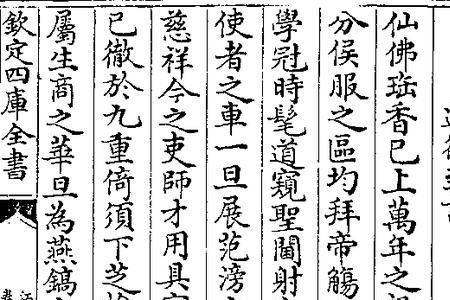 仙佛香已上萬年之
分侯服之區均拜帝觴
學冠時髦道窺聖閫射
使者之車一旦展范滂
慈祥今之吏師才用具
已徹於九重倚須下芝
屬生商之華旦為燕鎬
欽定四庫全書